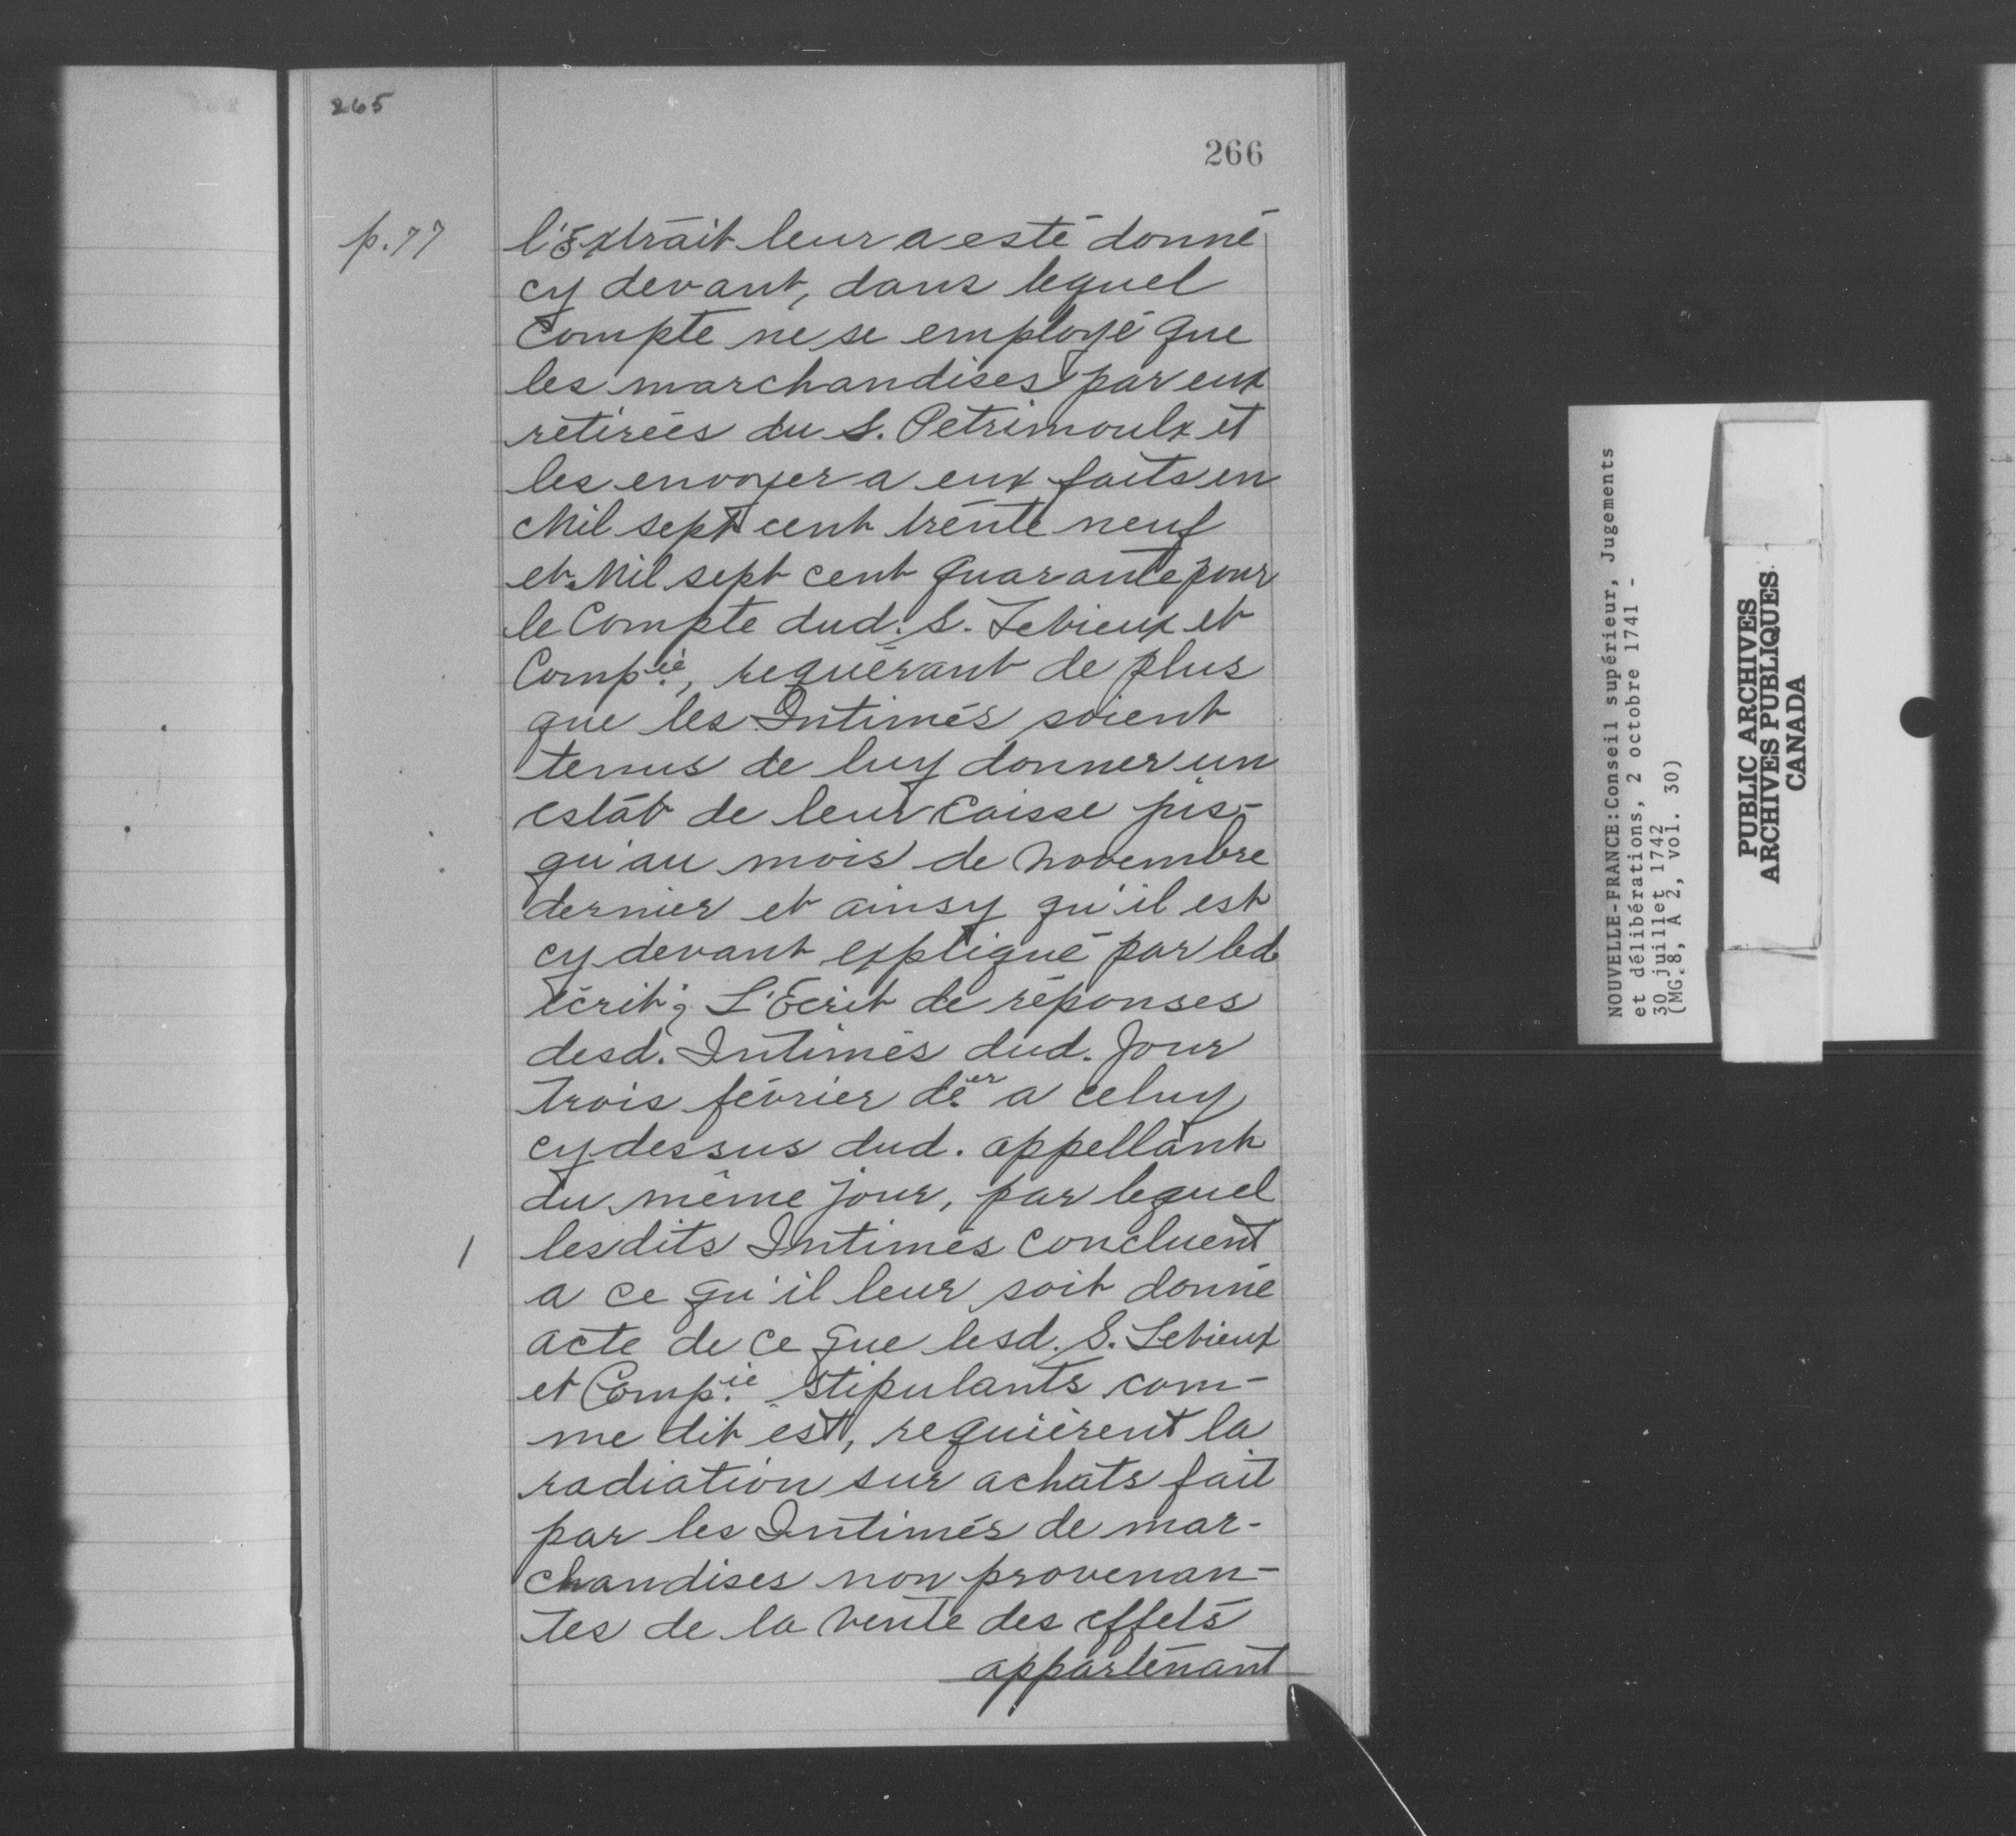 265
266
p. 77
l'Extrait leur a esté donné
cy devant, dans lequel
Compte ne se employé que
les marchandises par eux
retirées du S. Petrimoulx et
les envoyer a eux faits en
Mil sept cent trente neuf
et Mil sept cent quarante pour
le Compte dud. S. Lebieux et
Comp.ie, requérant de plus
que les Intimés soient
tenus de luy donner un
estat de leur Caisse jus-
qu'au mois de Novembre
dernier et ainsy qu'il est
cy devant expliqué par led.
écrit; L'Ecrit de réponses
desd. Intimés dud. Jour
trois février der. a celuy
cy dessus dud. appellant
du même jour, par lequel
les dits Intimés concluent
a ce qu'il leur soit donné
acte de ce que lesd. S. Lebieux
et Comp.ie stipulants com-
me dit est, requièrent la
radiation sur achats fait
par les Intimés de mar-
chandises non provenan-
tes de la vente des effets
appartenant
NOUVELLE-FRANCE:Conseil supérieur, Jugements
et délibérations, 2 octobre 1741 -
30 juillet 1742
(MG.8, A 2, vol. 30)
PUBLIC ARCHIVES
ARCHIVES PUBLIQUES
CANADA